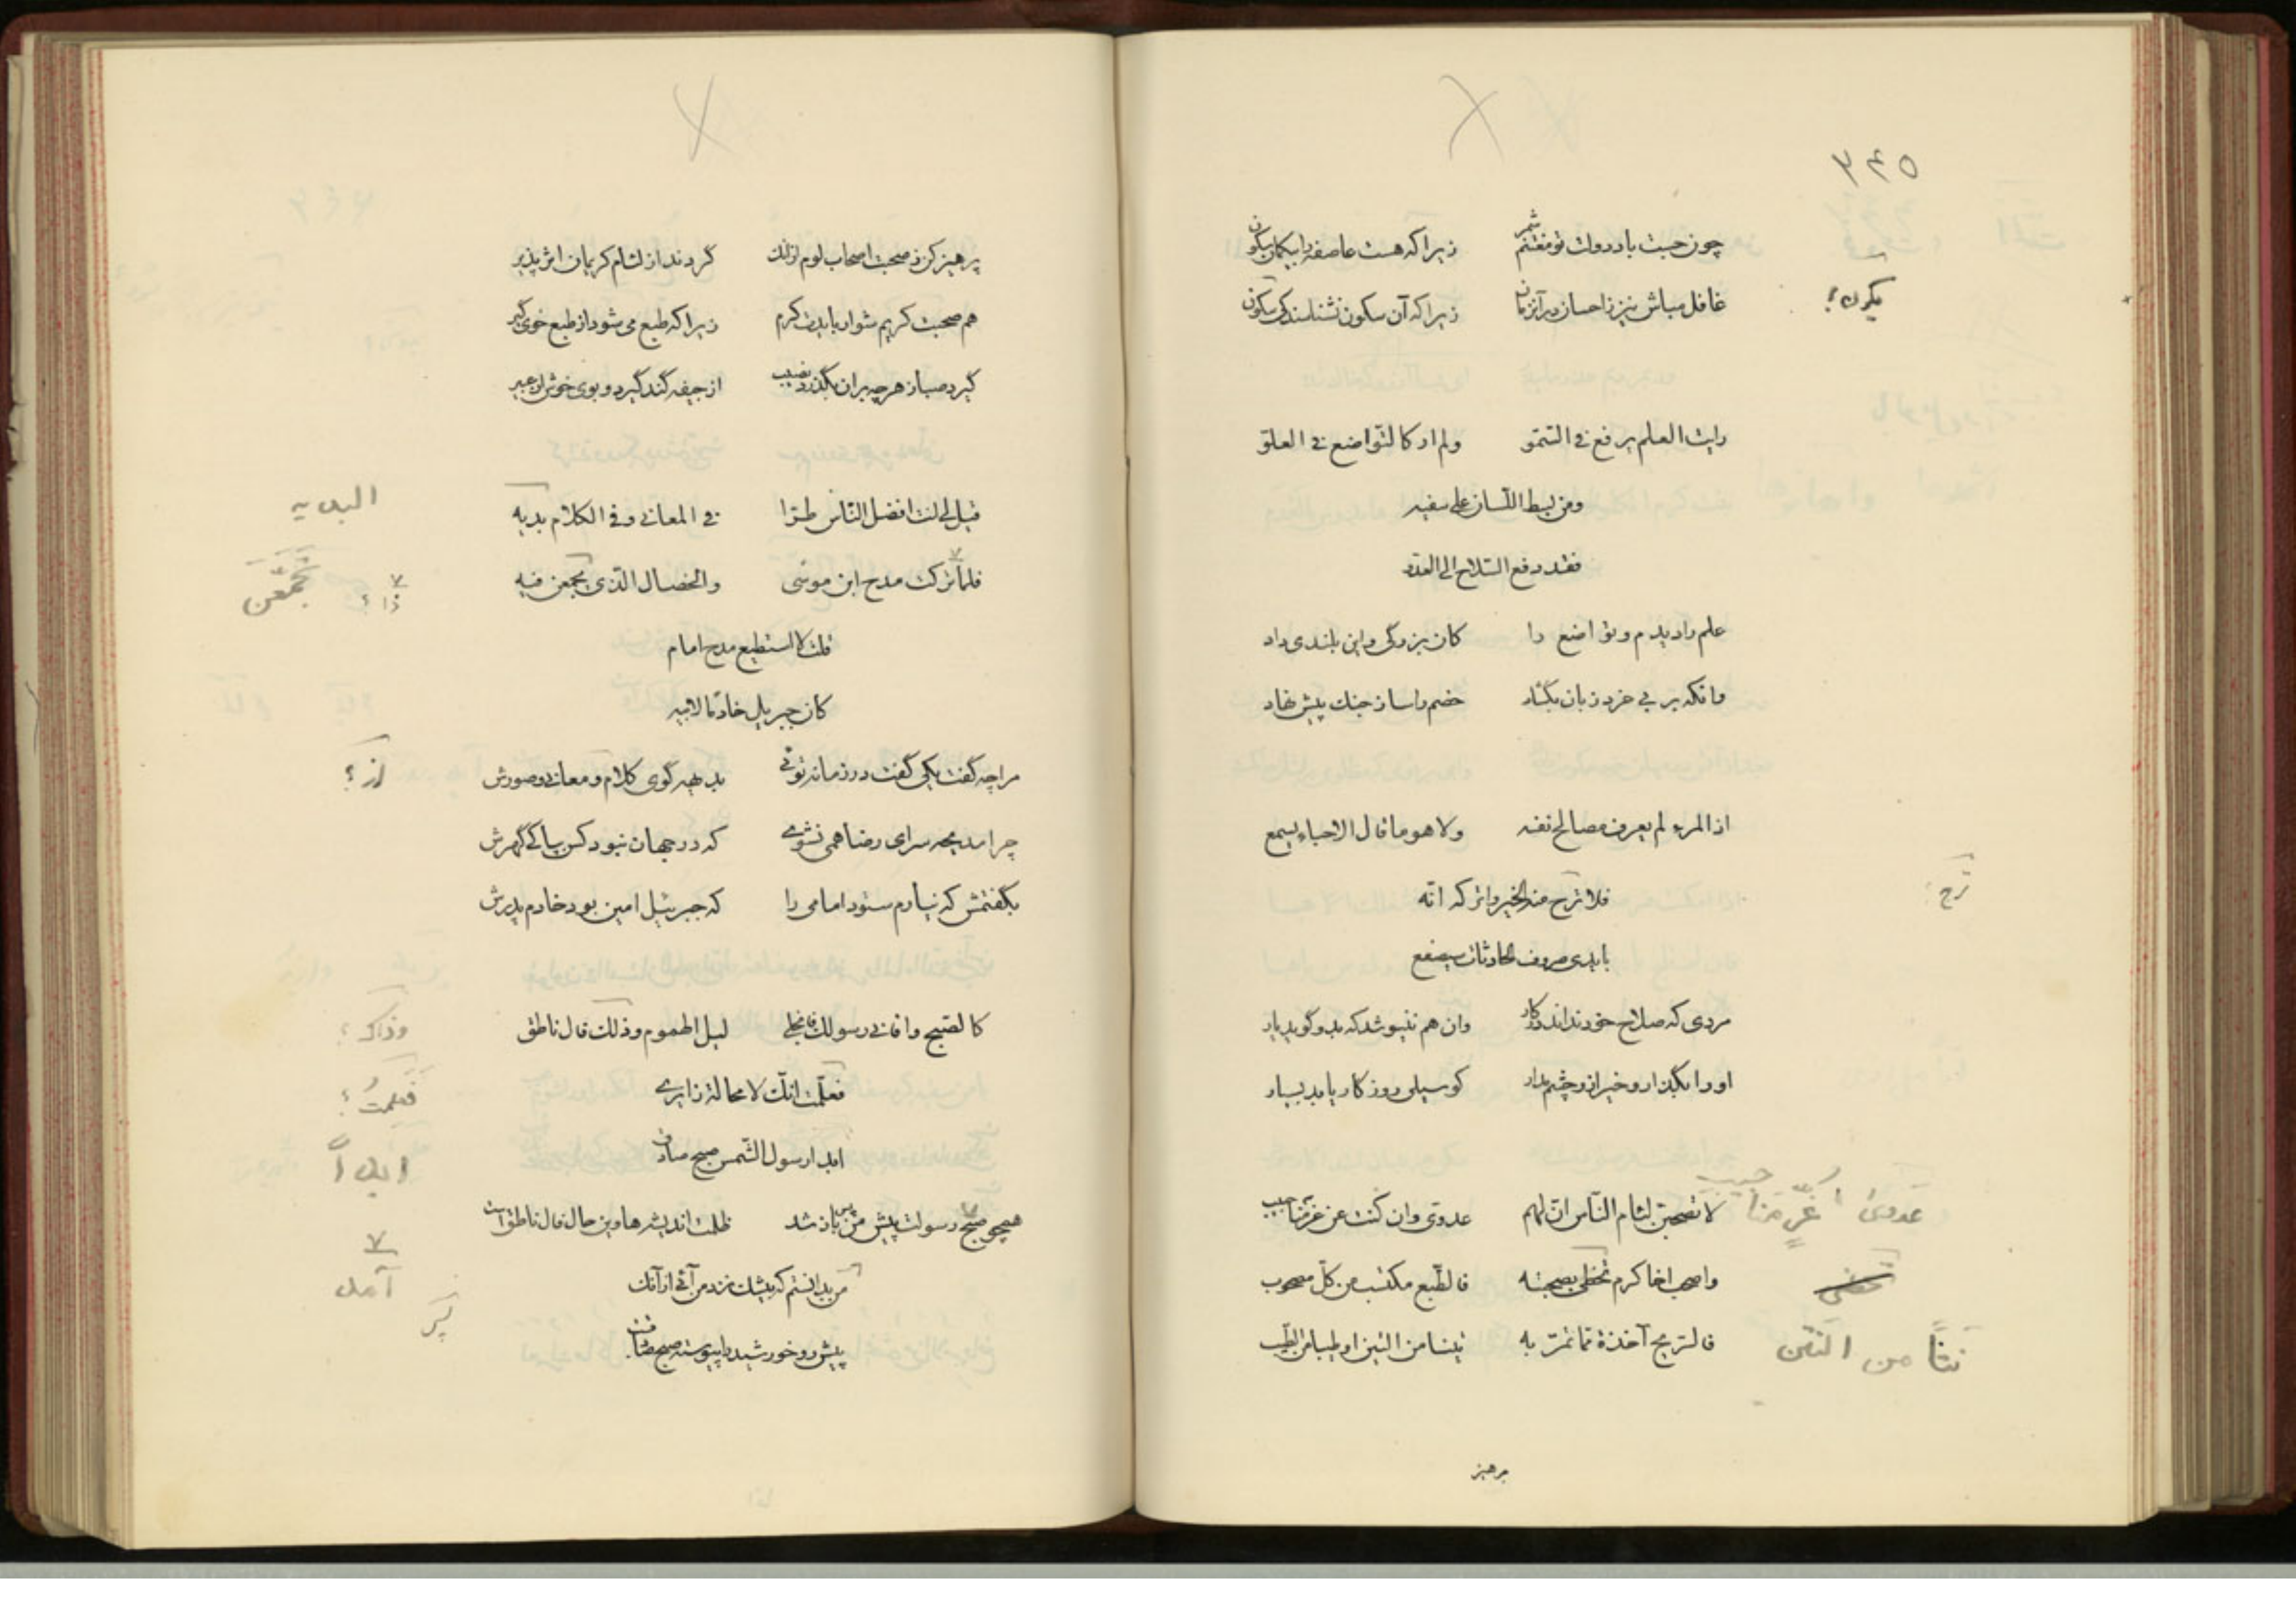 ۳۴۵
چون جست باد دولت تو مغتنم شمر زیرا که هست عاصفه را بیکمان سکون
غافل مباش نیز ز احسان در آنزمان زیرا که آن سکون نشناسند کی سکون
یکون؟
رایت العلم یرفع فی السّموّ ولم ار کالتّواضع فی العلوّ
ومن بسط اللّسان علی سفیه
فقد دفع السّلاح الی العدوّ
علم را دیدم و تواضع را کان بزرگی و این بلندی داد
وانکه بر بی خرد زبان بگشاد خصم را ساز جنک پیش نهاد
اذا المرء لم یعرف مصالح نفسه ولا هو ما قال الاحباء یسمع
فلا ترج منه الخیر واترکه انّه
ترج؛
بایدی صروف الحادثات سیصفع
مردی که صلاح خود نداند در کار وان هم ننیوشد که بدو گوید یار
او را بگذار و خیر ازو چشم مدار کو سیلی روزکار یابد بسیار
لا تصحبن لئام النّاس انّ لهم عدوی وان کنت عن عرّ منا حبیب
عدوی عرّ منا
حبیب
واصحب اخا کرم تحظی بصحبته فالطّبع مکتسب من کلّ مصحوب
تحظی
فالرّیح آخذة ممّا تمرّ به نتنا من النتن او طیبا من الطّیب
نتنًا من النتن
پرهیز
پرهیز کن ز صحبت اصحاب لوم ازانک گردند از لئام کریمان اثر پذیر
هم صحبت کریم شو ار بایدت کرم زیرا که طبع می شود از طبع خوی گیر
گیرد صبا ز هرچه بران بگذرد نصیب از جیفه گند گیرد و بوی خوش از عبیر
قیل لی انت افضل النّاس طرّا فی المعانی وفی الکلام بدیه
البدیه
فلما ترکت مدح ابن موسی والخصال الّذی تجمعن فیه
ذا؟ تَجَمَّعْنَ
قلت لا استطیع مدح امام
کان جبریل خادما لابیه
مرا چه گفت یکی گفت در زمانه توئی بدیهه گوی کلام و معانی و صورش
از؟
چرا مدیحه سرای رضا همی نشوی که در جهان نبود کس بپاکی گهرش
بگفتمش که نیارم ستود امامی را که جبرئیل امین بود خادم پدرش
کالصّبح وافانی رسولک فانجلی لیل الهموم وذلک قال ناطق
وذاک؟
فعلمت انّک لا محالة زایری
فَعَلِمتُ؟
ابدا رسول الشّمس صبح صادق
ابداً
همچو صبح رسولت پیش من باز شد ظلمت اندیشه‌ها وین حال فال ناطق است
آمد
من بدانستم که پیشک نزد من آئی ازآنک
پیش رو خورشید را پیوسته صبح صادقست